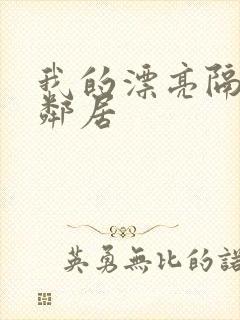 我的漂亮隔
鄰居
英勇無比的諾